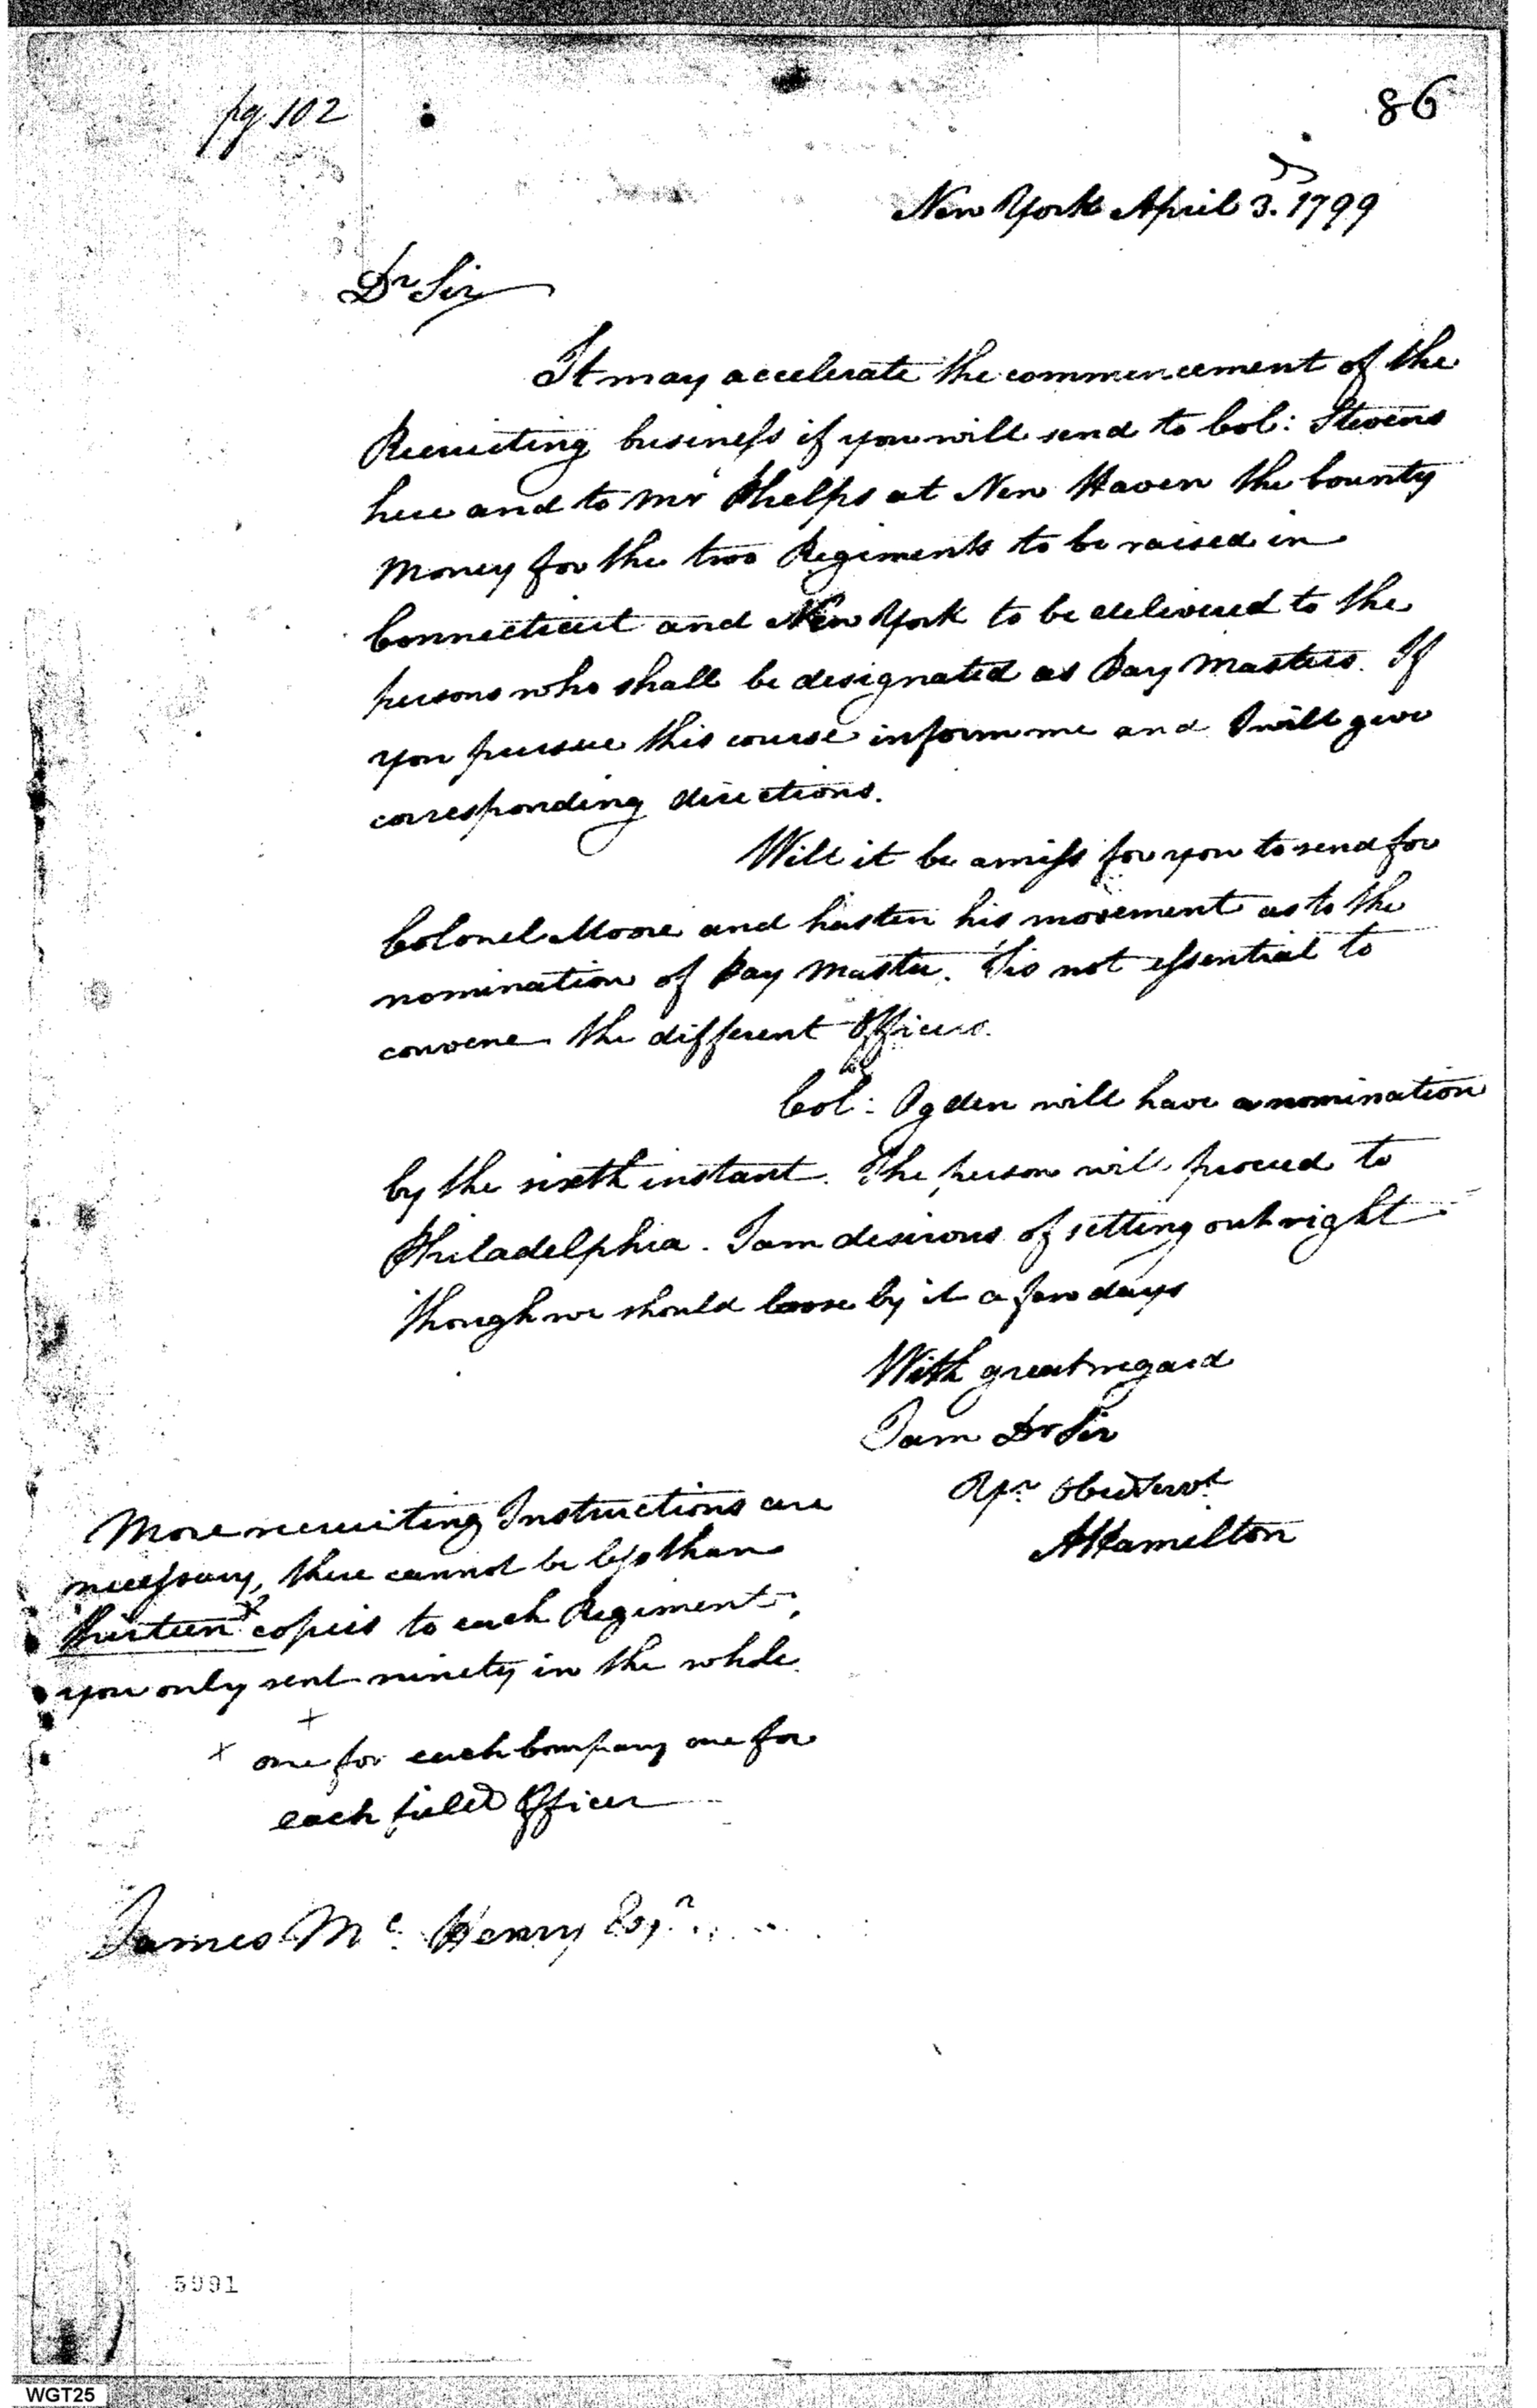 pg. 102
86
New York April 3d. 1799
Dr Sir
It may accelerate the commencement of the
Recruiting business if you will send to Col: Stevens
here and to Mr Phelps at New Haven the bounty
Money for the two Regiments to be raised in
Connecticut and New York to be delivered to the
persons who shall be designated as Pay Masters. If
you pursue this course inform me and I will give
corresponding directions.
Will it be amiss for you to send for
Colonel Moore and hasten his movement as to the
nomination of Pay Master. Tis not essential to
convene the different Officers.
Col: Ogden will have a nomination
by the sixth instant. The person will proceed to
Philadelphia. I am desirous of setting out right
though we should loose by it a few days
With great regard
I am Dr Sir
Yr. Obed Servt.
AHamilton
More recruiting Instructions are
necessary, there cannot be less than
thirteen x copies to each Regiment,
you only sent ninety in the whole.
+
x one for each Company one for
each field Officer
James Mc. Henry Esqr.
5991
WGT25